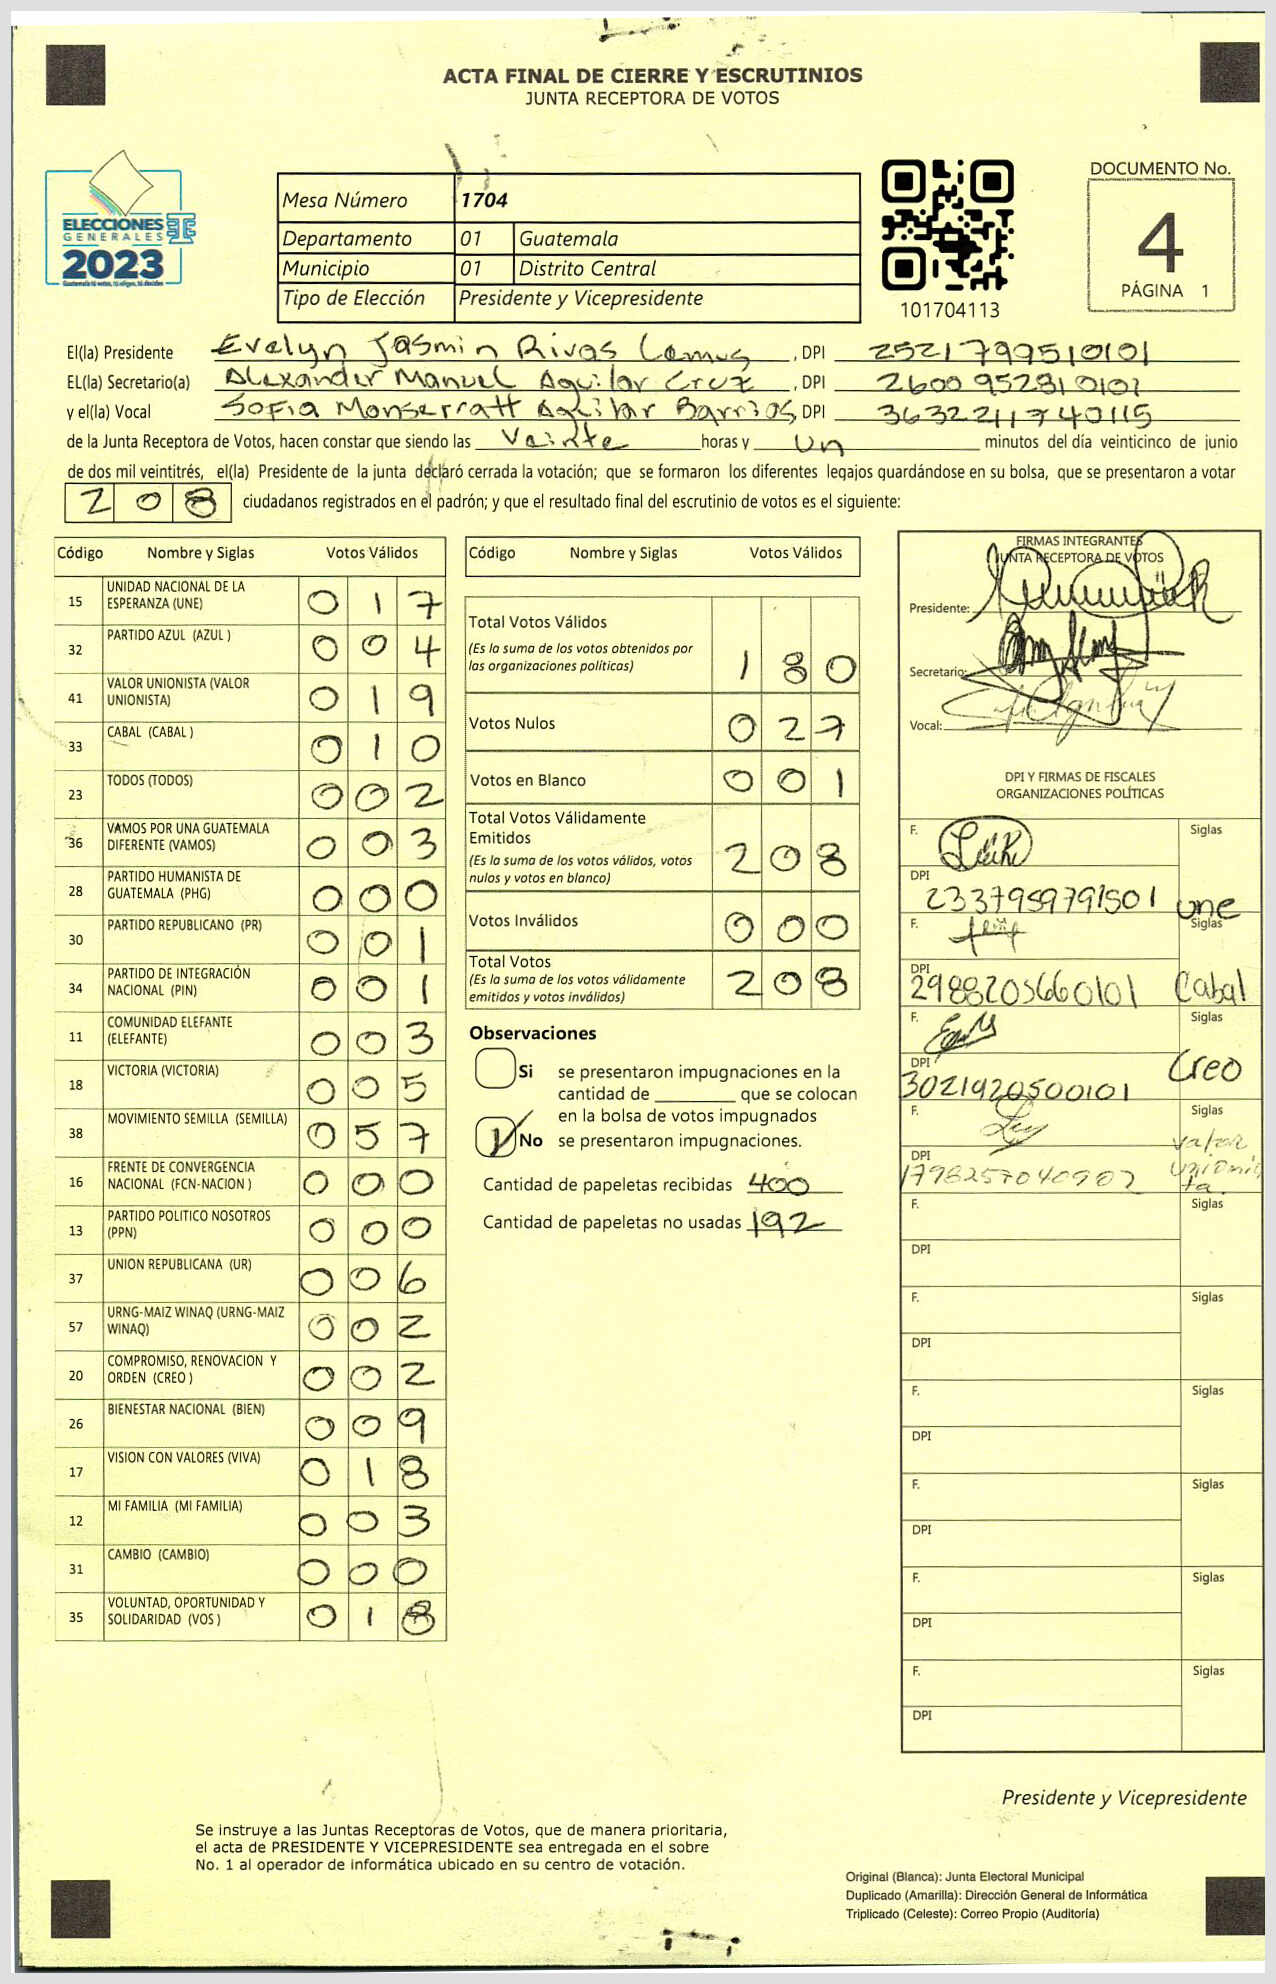 ACTA FINAL DE CIERRE Y ESCRUTINIOS
JUNTA RECEPTORA DE VOTOS
ELECCIONES
GENERALES
2023
Guatemala tú votas, tú eliges, tú decides
Mesa Número 1704
Departamento 01 Guatemala
Municipio 01 Distrito Central
Tipo de Elección Presidente y Vicepresidente
101704113
DOCUMENTO No.
4
PÁGINA 1
El(la) Presidente Evelyn Jasmin Rivas Lemus, DPI 2521799510101
EL(la) Secretario(a) Alexander Manuel Aguilar Cruz, DPI 2600952810101
y el(la) Vocal Sofia Monserratt Aguilar Barrios, DPI 3632211740115
de la Junta Receptora de Votos, hacen constar que siendo las Veinte horas y un minutos del día veinticinco de junio
de dos mil veintitrés, el(la) Presidente de la junta declaró cerrada la votación; que se formaron los diferentes legajos guardándose en su bolsa, que se presentaron a votar
208 ciudadanos registrados en el padrón; y que el resultado final del escrutinio de votos es el siguiente:
Código Nombre y Siglas Votos Válidos
15 UNIDAD NACIONAL DE LA ESPERANZA (UNE) 017
32 PARTIDO AZUL (AZUL ) 004
41 VALOR UNIONISTA (VALOR UNIONISTA) 019
33 CABAL (CABAL ) 010
23 TODOS (TODOS) 002
36 VAMOS POR UNA GUATEMALA DIFERENTE (VAMOS) 003
28 PARTIDO HUMANISTA DE GUATEMALA (PHG) 000
30 PARTIDO REPUBLICANO (PR) 001
34 PARTIDO DE INTEGRACIÓN NACIONAL (PIN) 001
11 COMUNIDAD ELEFANTE (ELEFANTE) 003
18 VICTORIA (VICTORIA) 005
38 MOVIMIENTO SEMILLA (SEMILLA) 057
16 FRENTE DE CONVERGENCIA NACIONAL (FCN-NACION ) 000
13 PARTIDO POLITICO NOSOTROS (PPN) 000
37 UNION REPUBLICANA (UR) 006
57 URNG-MAIZ WINAQ (URNG-MAIZ WINAQ) 002
20 COMPROMISO, RENOVACION Y ORDEN (CREO ) 002
26 BIENESTAR NACIONAL (BIEN) 009
17 VISION CON VALORES (VIVA) 018
12 MI FAMILIA (MI FAMILIA) 003
31 CAMBIO (CAMBIO) 000
35 VOLUNTAD, OPORTUNIDAD Y SOLIDARIDAD (VOS ) 018
Código Nombre y Siglas Votos Válidos
Total Votos Válidos 180
(Es la suma de los votos obtenidos por
las organizaciones políticas)
Votos Nulos 027
Votos en Blanco 001
Total Votos Válidamente
Emitidos 208
(Es la suma de los votos válidos, votos
nulos y votos en blanco)
Votos Inválidos 000
Total Votos 208
(Es la suma de los votos válidamente
emitidos y votos inválidos)
Observaciones
Si se presentaron impugnaciones en la
cantidad de ________ que se colocan
en la bolsa de votos impugnados
No se presentaron impugnaciones.
Cantidad de papeletas recibidas 400
Cantidad de papeletas no usadas 192
FIRMAS INTEGRANTES
JUNTA RECEPTORA DE VOTOS
Presidente:
Secretario:
Vocal:
DPI Y FIRMAS DE FISCALES
ORGANIZACIONES POLÍTICAS
F. Siglas
DPI
2337959791501 une
F. Siglas
DPI
2988205660101 Cabal
F. Siglas
DPI
3021920500101 Creo
F. Siglas
DPI
1798257040902 valor unionista
F. Siglas
DPI
F. Siglas
DPI
F. Siglas
DPI
F. Siglas
DPI
F. Siglas
DPI
F. Siglas
DPI
Presidente y Vicepresidente
Se instruye a las Juntas Receptoras de Votos, que de manera prioritaria,
el acta de PRESIDENTE Y VICEPRESIDENTE sea entregada en el sobre
No. 1 al operador de informática ubicado en su centro de votación.
Original (Blanca): Junta Electoral Municipal
Duplicado (Amarilla): Dirección General de Informática
Triplicado (Celeste): Correo Propio (Auditoría)